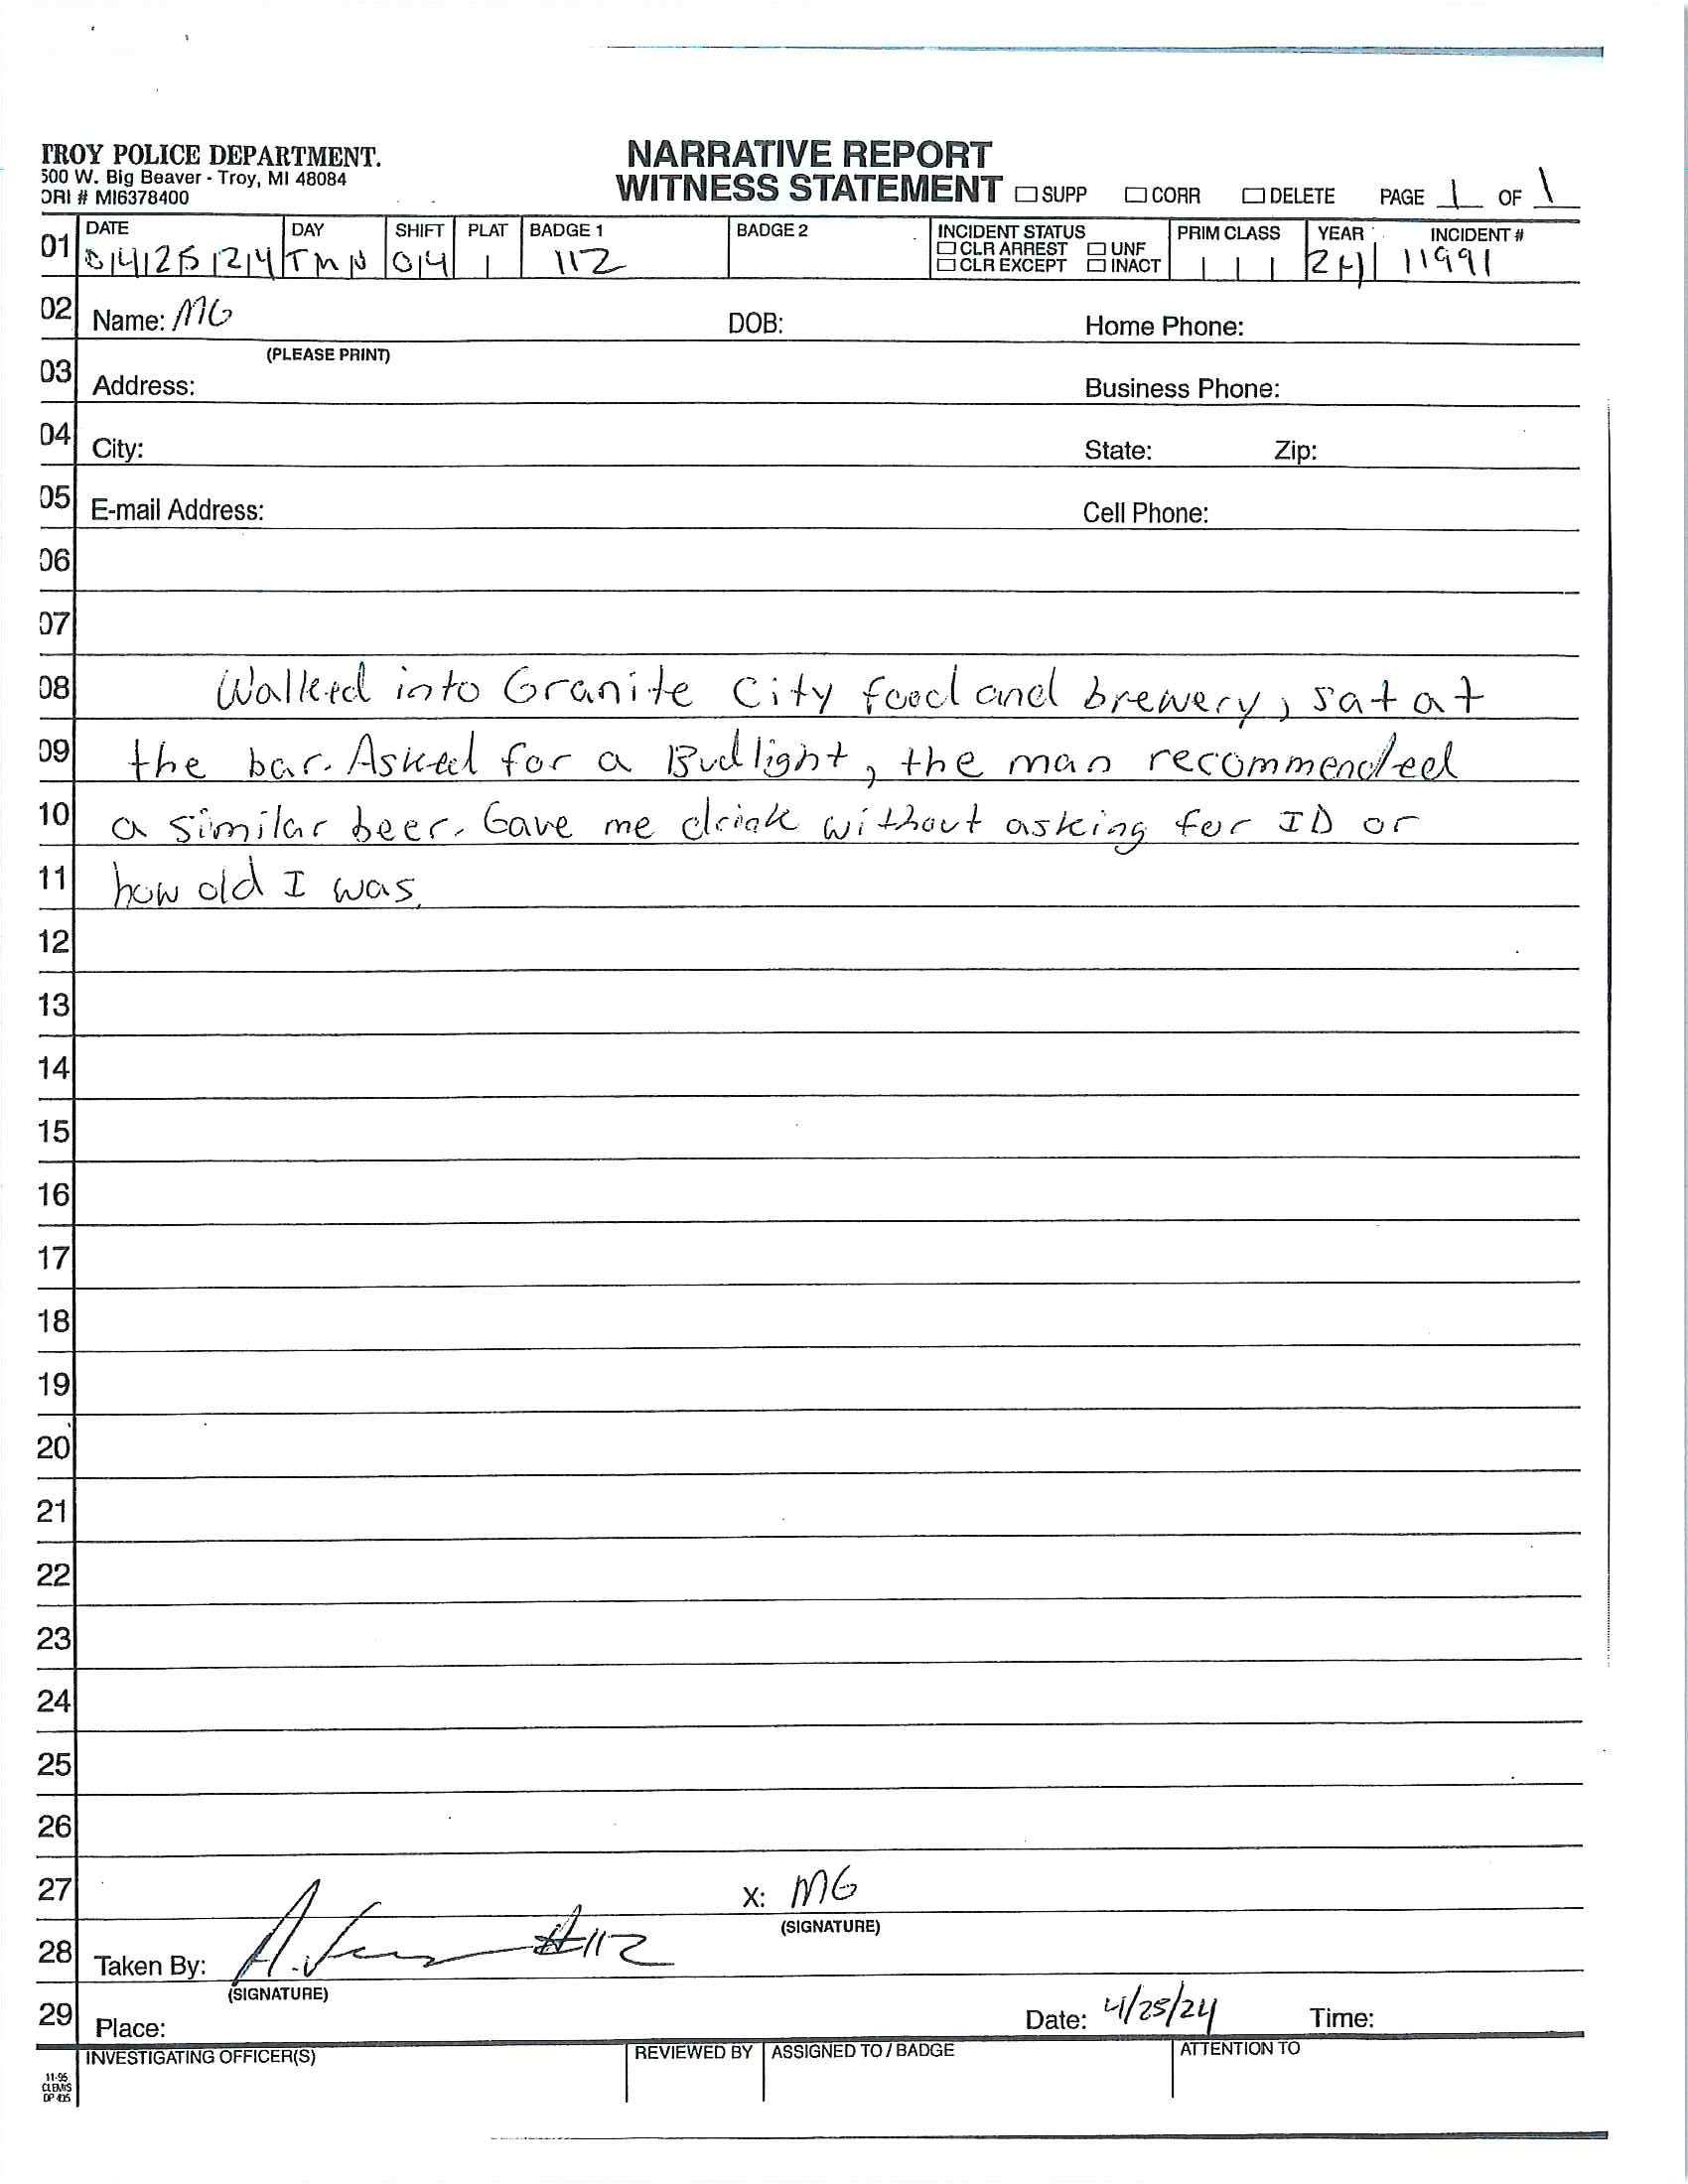 TROY POLICE DEPARTMENT.
500 W. Big Beaver - Troy, MI 48084
ORI # MI6378400
NARRATIVE REPORT
WITNESS STATEMENT ☐ SUPP ☐ CORR ☐ DELETE PAGE 1 OF 1
01 DATE DAY SHIFT PLAT BADGE 1 BADGE 2 INCIDENT STATUS PRIM CLASS YEAR INCIDENT #
☐ CLR ARREST ☐ UNF
☐ CLR EXCEPT ☐ INACT
04 25 24 04 1 112 24 11991
02 Name: MG DOB: Home Phone:
(PLEASE PRINT)
03 Address: Business Phone:
04 City: State: Zip:
05 E-mail Address: Cell Phone:
06
07
08 Walked into Granite City food and brewery, sat at
09 the bar. Asked for a Bud light, the man recommended
10 a similar beer. Gave me drink without asking for ID or
11 how old I was.
12
13
14
15
16
17
18
19
20
21
22
23
24
25
26
27 X: MG
(SIGNATURE)
28 Taken By: #112
(SIGNATURE)
29 Place: Date: 4/25/24 Time:
INVESTIGATING OFFICER(S) REVIEWED BY ASSIGNED TO / BADGE ATTENTION TO
11-95
CLEMIS